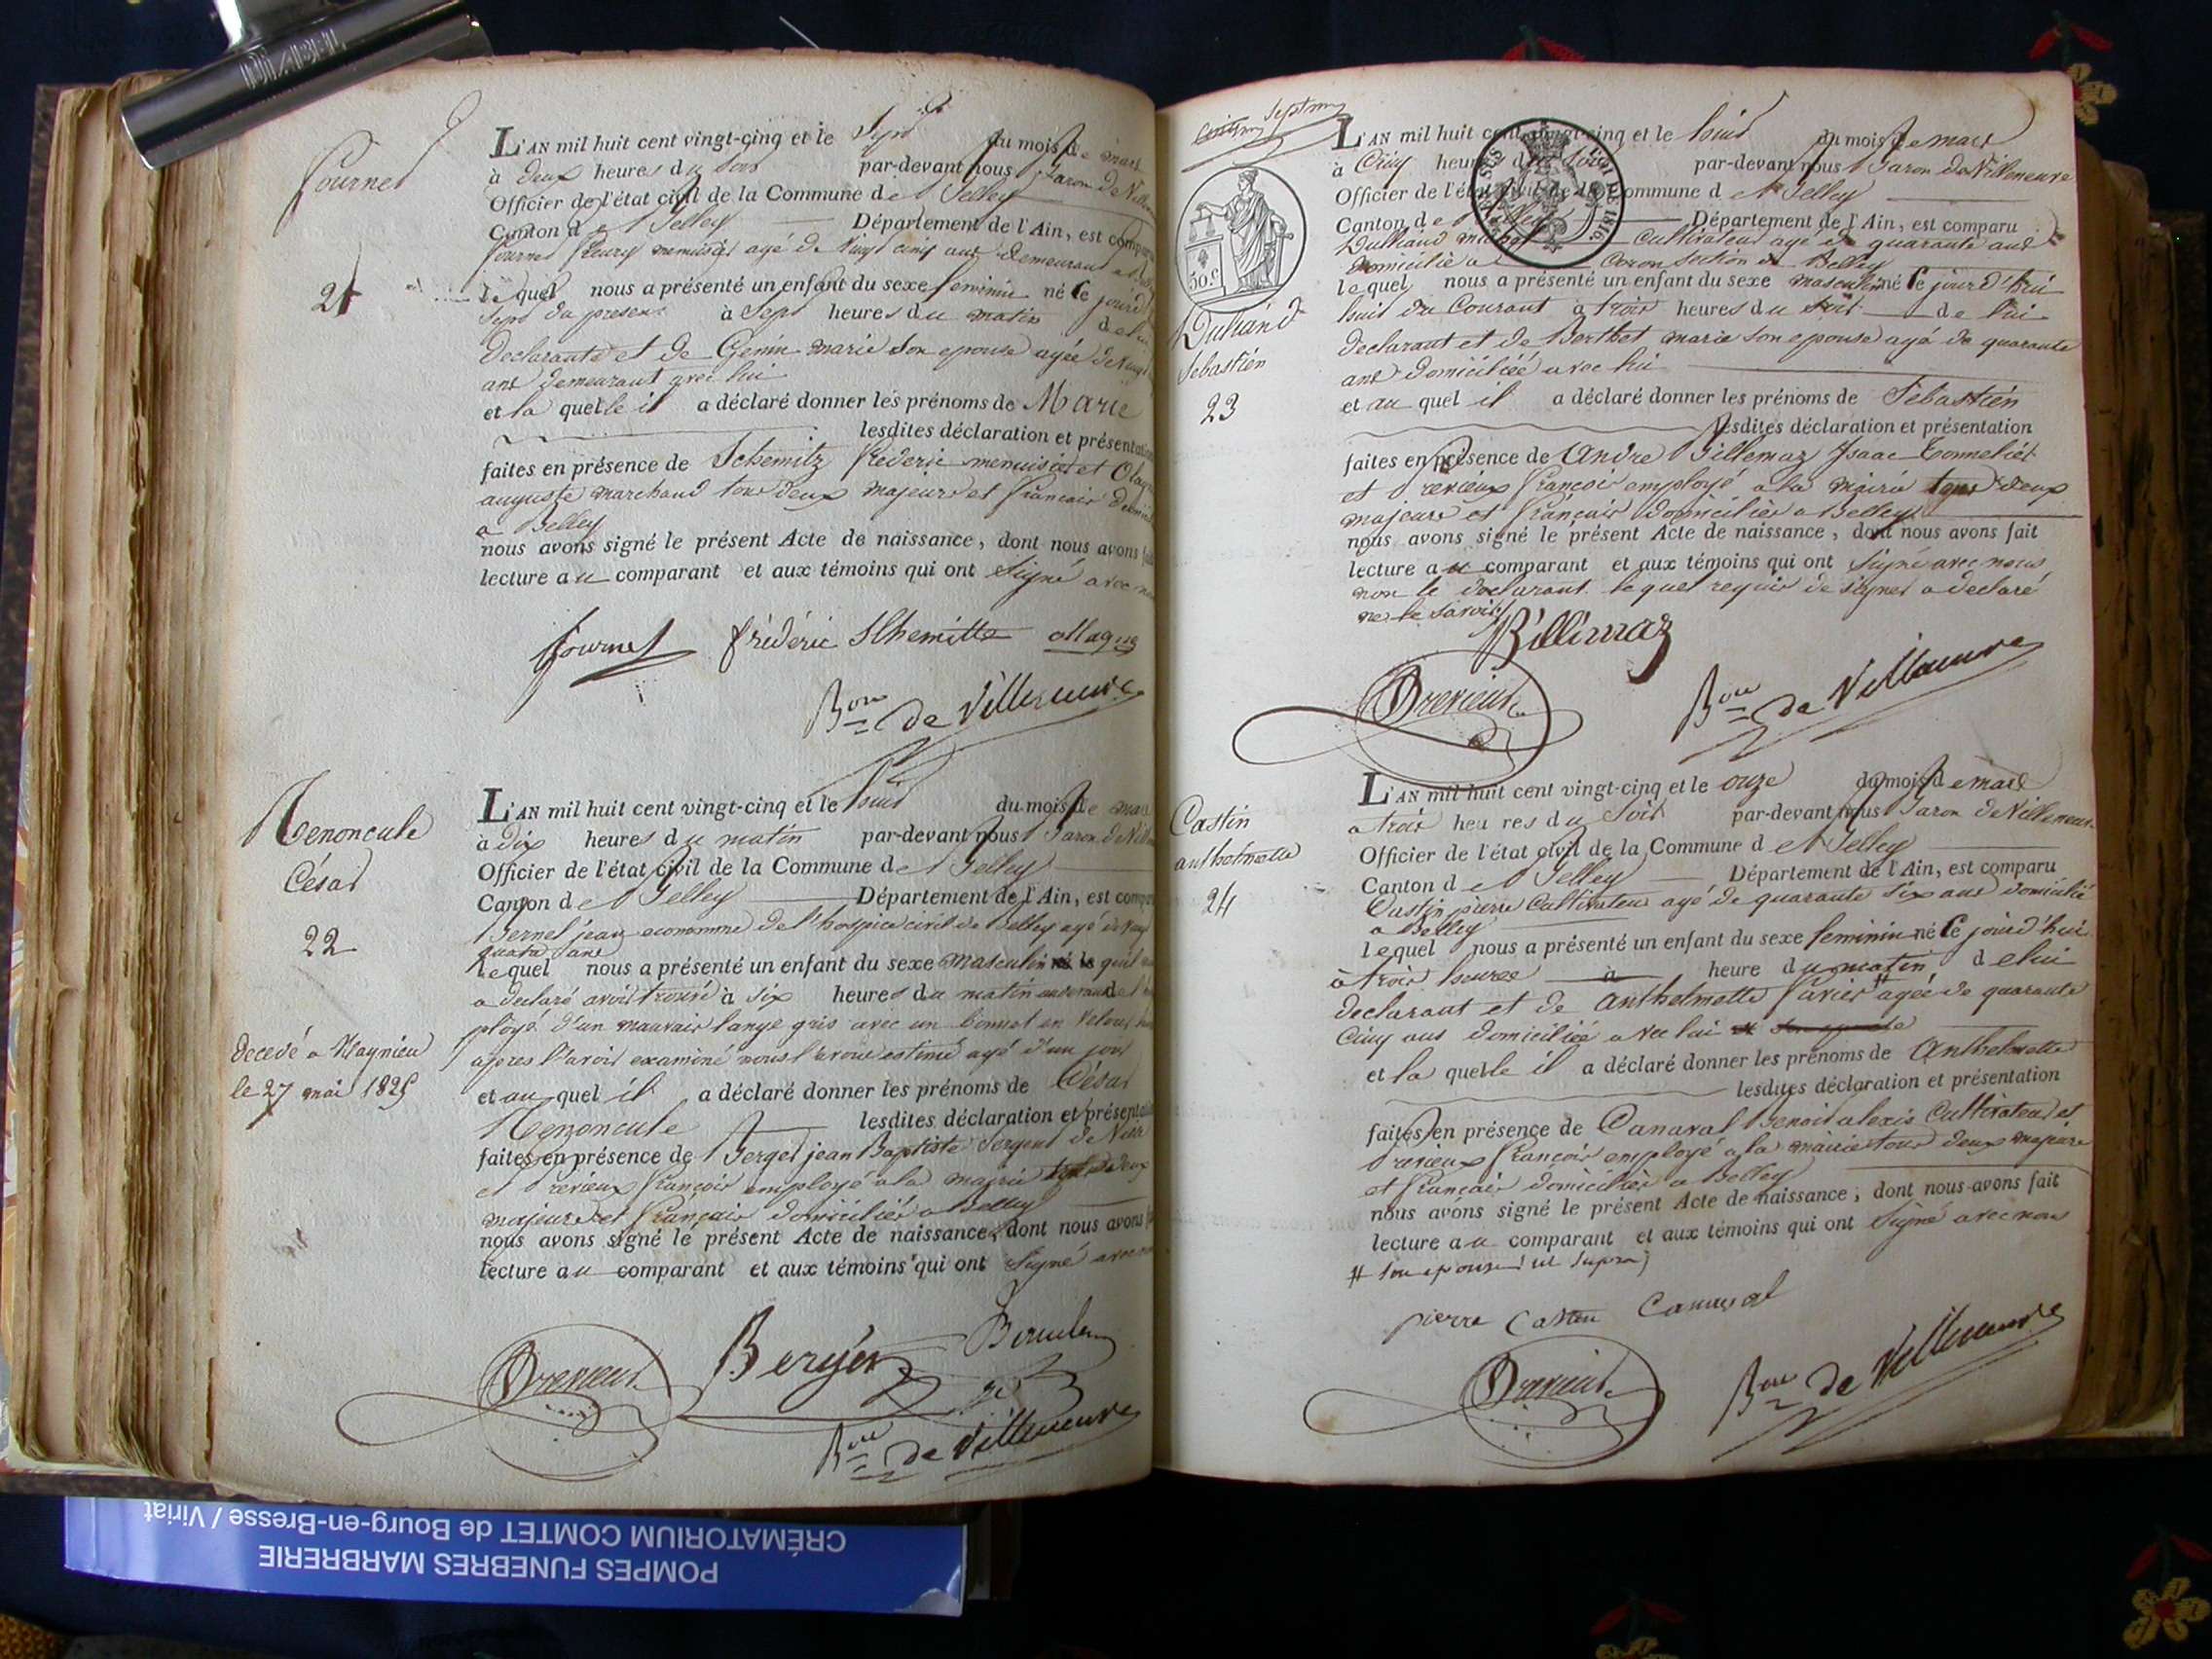 Fournet
21
L'AN mil huit cent vingt-cinq et le Sept du mois de mars
à deux heures du soir par-devant nous Baron de
Officier de l'état civil de la Commune de Belley
Canton de Belley Département de l'Ain, est
fournet fleury menuisier agé de Vingt cinq ans demeurant a
lequel nous a présenté un enfant du sexe feminin né Ce
Sept du present à Sept heures du matin
declarante et de Genin marie son epouse agée de
ans demeurant avec lui
et la quelle il a déclaré donner les prénoms de Marie
lesdites déclaration et
faites en présence de Schemitz frederic menuisier et
auguste marchand tous deux majeurs et francais
a Belley
nous avons signé le présent Acte de naissance, dont nous avons
lecture au comparant et aux témoins qui ont Signé avec
fournet frédéric
Bon de Villeneuve
Renoncule
César
22
decedé a
le 27 mai 1825
L'AN mil huit cent vingt-cinq et le huit du mois de mars
à dix heures du matin par-devant nous Baron de
Officier de l'état civil de la Commune de Belley
Canton de Belley Département de l'Ain, est
jean economme de l'hospice civil de Belley agé de
quatre ans
lequel nous a présenté un enfant du sexe masculin
a declaré avoir trouvé à six heures du matin
d'un mauvais lange gris avec un bonnet en Velours
apres l'avoir examiné nous l'avons estimé agé d'un jour
et au quel il a déclaré donner les prénoms de César
Renoncule lesdites déclaration et
faites en présence de Berger jean Baptiste Sergent de
et Drevieux françois employé a la mairie tous deux
majeurs et français domiciliés a Belley
nous avons signé le présent Acte de naissance, dont nous avons
lecture au comparant et aux témoins qui ont Signé avec
Drevieux Berger
Bon de Villeneuve
50.c
Sebastien
23
L'AN mil huit cent vingt-cinq et le huit du mois de mars
à Cinq heures du soir par-devant nous Baron de Villeneuve
Officier de l'état civil de la Commune de Belley
Canton de Belley Département de l'Ain, est comparu
cultivateur agé de quarante ans
domicilié a Coron section de Belley
lequel nous a présenté un enfant du sexe masculin né Ce jour d'hui
huit du Courant à trois heures du soir de lui
declarant et de Berthet marie son epouse agé de quarante
ans domiciliée avec lui
et au quel il a déclaré donner les prénoms de Sébastien
lesdites déclaration et présentation
faites en présence de Andre Billemaz Isaac Tonnelier
et Drevieux françois employé a la mairie tous deux
majeurs et français domiciliés a Belley
nous avons signé le présent Acte de naissance, dont nous avons fait
lecture au comparant et aux témoins qui ont Signé avec nous
non le declarant lequel requis de signer a declaré
ne le savoir
Billimaz
Drevieux Bon de Villeneuve
Castin
anthelmette
24
L'AN mil huit cent vingt-cinq et le onze du mois de mars
a trois heures du Soir par-devant nous Baron de Villeneuve
Officier de l'état civil de la Commune de Belley
Canton de Belley Département de l'Ain, est comparu
Castin pierre Cultivateur agé de quarante six ans domicilié
a Belley
lequel nous a présenté un enfant du sexe feminin né Ce jourd'hui
à trois heures à heure du matin de lui
declarant et de anthelmette # agée de quarante
Cinq ans domiciliée avec lui
et la quelle il a déclaré donner les prénoms de Anthelmette
lesdites déclaration et présentation
faites en présence de Canaval Benoit alexis Cultivateur et
Drevieux françois employé a la mairie tous deux majeurs
et français domiciliés a Belley
nous avons signé le présent Acte de naissance, dont nous avons fait
lecture au comparant et aux témoins qui ont Signé avec nous
# son epouse ut supra
pierre Castin Canaval
Drevieux Bon de Villeneuve
POMPES FUNEBRES MARBRERIE
CRÉMATORIUM COMTET de Bourg-en-Bresse / Viriat